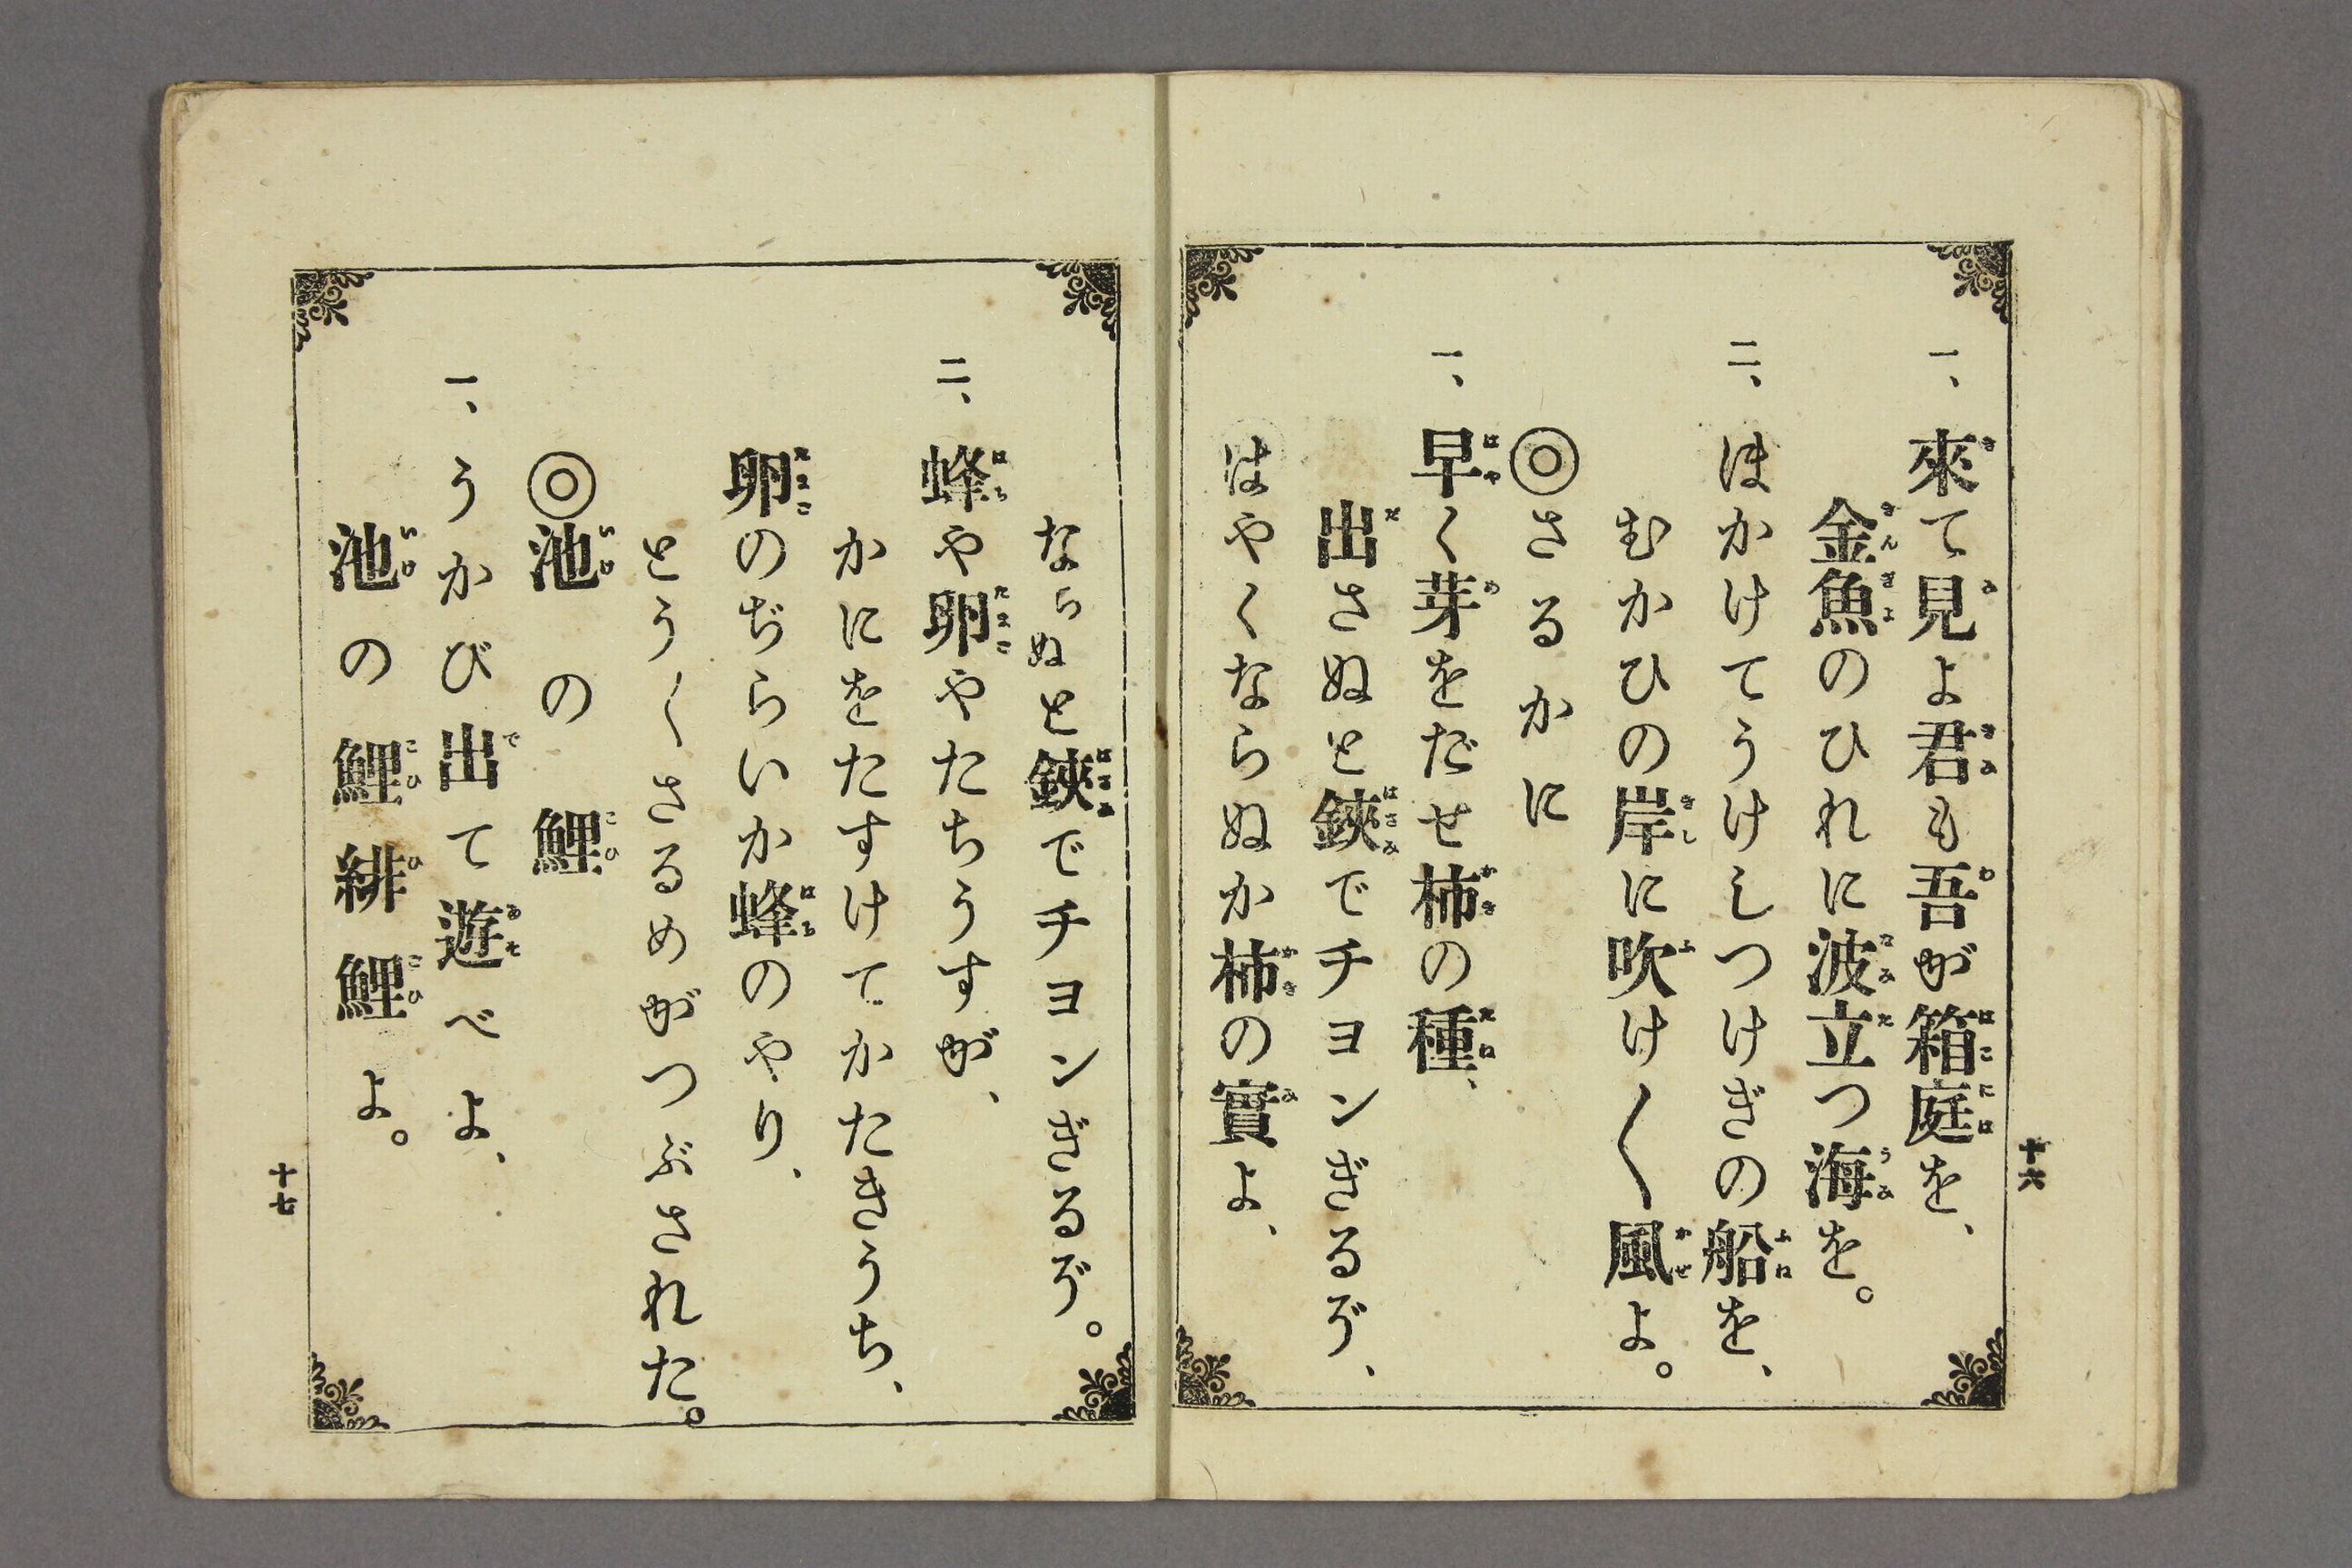 一、來て見よ君も吾が箱庭を、
金魚のひれに波立つ海を。
二、ほかけてうけしつけぎの船を、
むかひの岸に吹け〱風よ。
◎さるかに
一、早く芽をだせ柿の種、
出さぬと鋏でチヨンぎるぞ、
はやくならぬか柿の實よ、
十六
ならぬと鋏でチヨンぎるぞ。
二、蜂や卵やたちうすが、
かにをたすけてかたきうち、
卵のぢらいか蜂のやり、
とう〱さるめがつぶされた。
◎池の鯉
一、うかび出て遊べよ、
池の鯉緋鯉よ。
十七